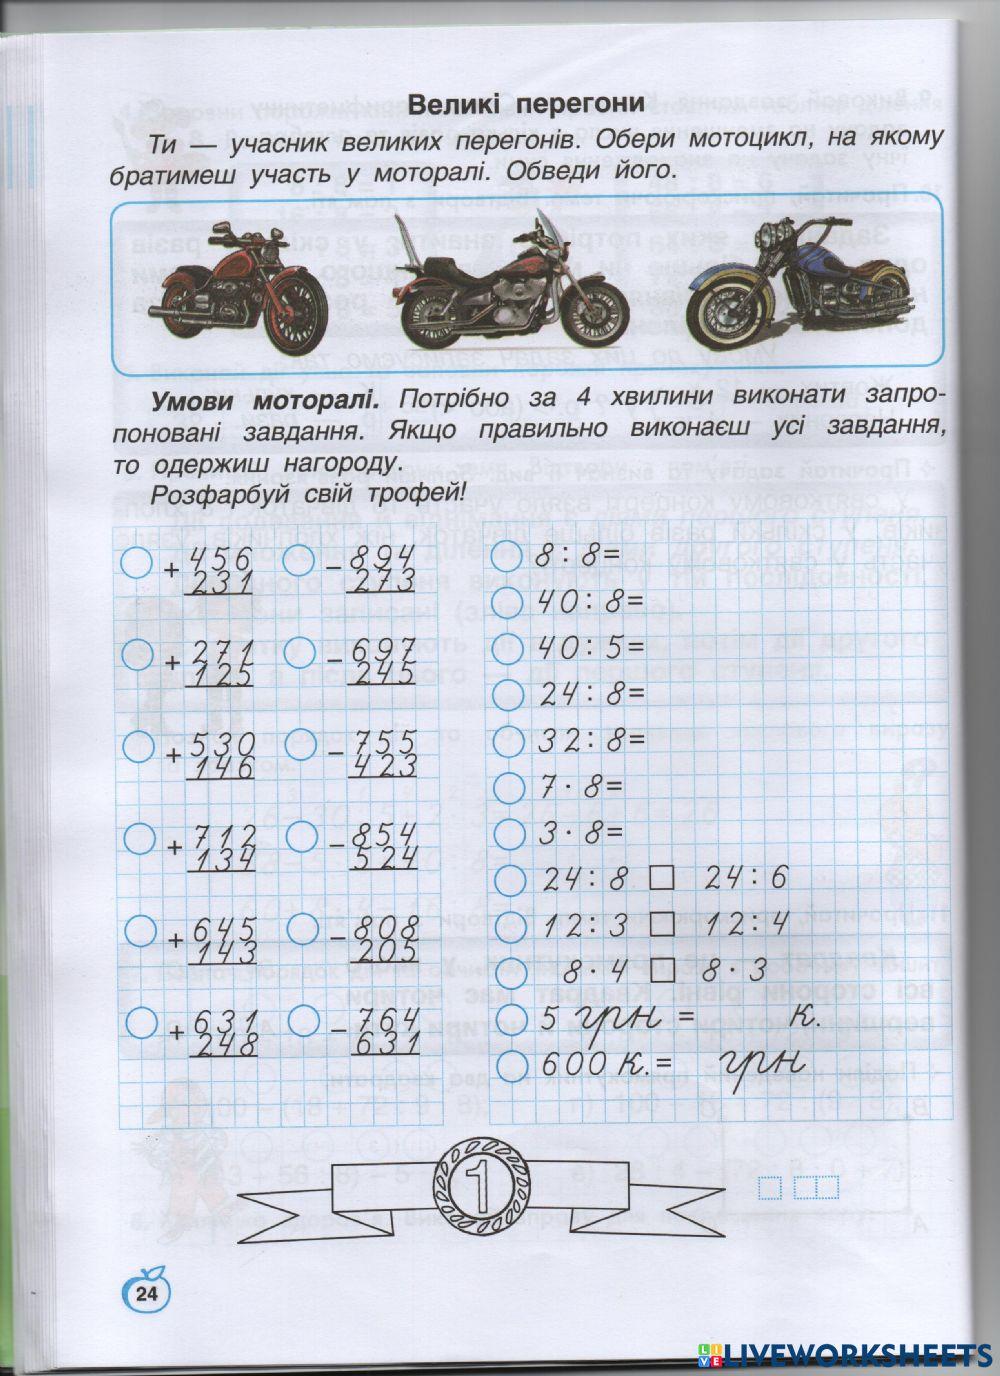 Великі перегони
Ти — учасник великих перегонів. Обери мотоцикл, на якому
братимеш участь у моторалі. Обведи його.
Умови моторалі. Потрібно за 4 хвилини виконати запро-
поновані завдання. Якщо правильно виконаєш усі завдання,
то одержиш нагороду.
Розфарбуй свій трофей!
+ 456
231
– 894
273
+ 271
125
– 697
245
+ 530
146
– 755
423
+ 712
134
– 854
524
+ 645
143
– 808
205
+ 631
248
– 764
631
8 : 8 =
40 : 8 =
40 : 5 =
24 : 8 =
32 : 8 =
7 · 8 =
3 · 8 =
24 : 8 □ 24 : 6
12 : 3 □ 12 : 4
8 · 4 □ 8 · 3
5 грн = к.
600 к. = грн
1
24
LIVEWORKSHEETS